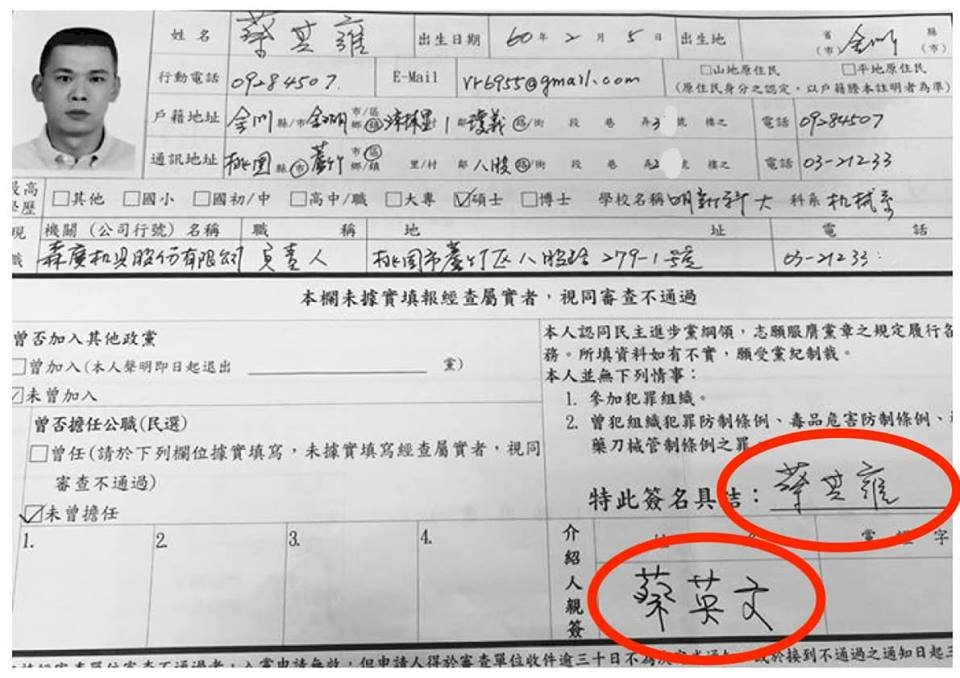 姓名 蔡其雍 出生日期 60年2月5日 出生地 省(市) 金門 縣(市)
行動電話 09284507 E-Mail vrb955@gmail.com □山地原住民 □平地原住民
(原住民身分之認定,以戶籍謄本註明者為準)
戶籍地址 金門縣/市 金湖 市/區 鄉/鎮 里/村 1鄰 瓊義 路/街 段 巷 弄 3 號 樓之 電話 09284507
通訊地址 桃園縣/市 蘆竹 市/區 鄉/鎮 里/村 鄰 八股路/街 段 巷 弄 2 號 樓之 電話 03-21233
最高學歷 □其他 □國小 □國初/中 □高中/職 □大專 ☑碩士 □博士 學校名稱 明新科大 科系 机械系
現 機關(公司行號)名稱 職稱 地址 電話
職 森廣机具股份有限公司 負責人 桃園市蘆竹区八股路279-1號 03-21233
本欄未據實填報經查屬實者,視同審查不通過
曾否加入其他政黨
□曾加入(本人聲明即日起退出 黨)
☑未曾加入
曾否擔任公職(民選)
□曾任(請於下列欄位據實填寫,未據實填寫經查屬實者,視同
審查不通過)
☑未曾擔任
1. 2. 3. 4.
本人認同民主進步黨綱領,志願服膺黨章之規定履行
務。所填資料如有不實,願受黨紀制裁。
本人並無下列情事:
1. 參加犯罪組織。
2. 曾犯組織犯罪防制條例、毒品危害防制條例、
藥刀械管制條例之罪。
特此簽名具結: 蔡其雍
介紹人親簽 姓名 黨證字
蔡英文
審查單位審查不通過者,入黨申請無效,但申請人得於審查單位收件逾三十日不為